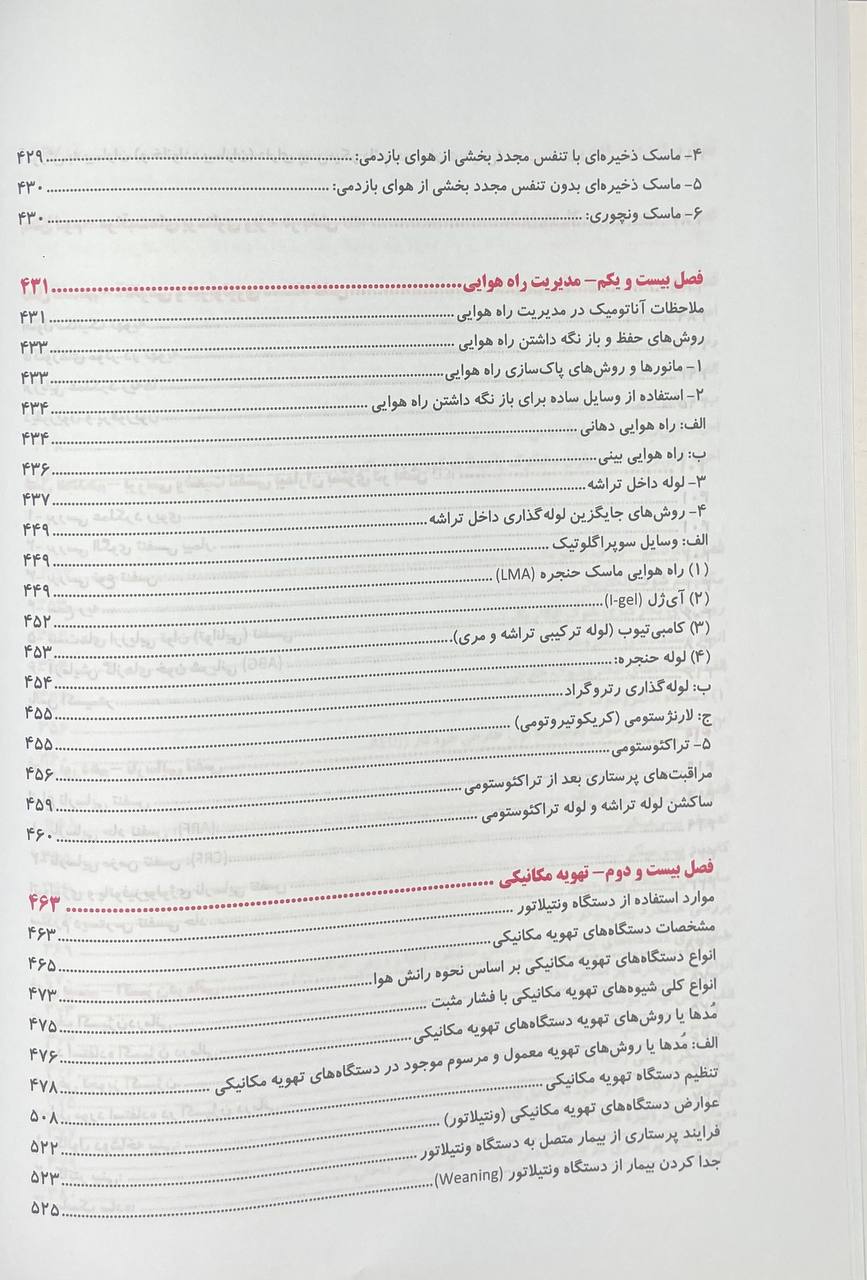 ۴- ماسک ذخیره‌ای با تنفس مجدد بخشی از هوای بازدمی: ........ ۴۲۹
۵- ماسک ذخیره‌ای بدون تنفس مجدد بخشی از هوای بازدمی: ........ ۴۳۰
۶- ماسک ونچوری: ........ ۴۳۰
فصل بیست و یکم- مدیریت راه هوایی ........ ۴۳۱
ملاحظات آناتومیک در مدیریت راه هوایی ........ ۴۳۱
روش‌های حفظ و باز نگه داشتن راه هوایی ........ ۴۳۳
۱- مانورها و روش‌های پاک‌سازی راه هوایی ........ ۴۳۳
۲- استفاده از وسایل ساده برای باز نگه داشتن راه هوایی ........ ۴۳۴
الف: راه هوایی دهانی ........ ۴۳۴
ب: راه هوایی بینی ........ ۴۳۶
۳- لوله داخل تراشه ........ ۴۳۷
۴- روش‌های جایگزین لوله‌گذاری داخل تراشه ........ ۴۴۹
الف: وسایل سوپراگلوتیک ........ ۴۴۹
(۱) راه هوایی ماسک حنجره (LMA) ........ ۴۴۹
(۲) آی‌ژل (I-gel) ........ ۴۵۲
(۳) کامبی‌تیوب (لوله ترکیبی تراشه و مری) ........ ۴۵۳
(۴) لوله حنجره: ........ ۴۵۴
ب: لوله‌گذاری رتروگراد ........ ۴۵۵
ج: لارنژستومی (کریکوتیروتومی) ........ ۴۵۵
۵- تراکئوستومی ........ ۴۵۶
مراقبت‌های پرستاری بعد از تراکئوستومی ........ ۴۵۹
ساکشن لوله تراشه و لوله تراکئوستومی ........ ۴۶۰
فصل بیست و دوم- تهویه مکانیکی ........ ۴۶۳
موارد استفاده از دستگاه ونتیلاتور ........ ۴۶۳
مشخصات دستگاه‌های تهویه مکانیکی ........ ۴۶۵
انواع دستگاه‌های تهویه مکانیکی بر اساس نحوه رانش هوا ........ ۴۷۳
انواع کلی شیوه‌های تهویه مکانیکی با فشار مثبت ........ ۴۷۵
مُدها یا روش‌های تهویه دستگاه‌های تهویه مکانیکی ........ ۴۷۶
الف: مُدها یا روش‌های تهویه معمول و مرسوم موجود در دستگاه‌های تهویه مکانیکی ........ ۴۷۸
تنظیم دستگاه تهویه مکانیکی ........ ۵۰۸
عوارض دستگاه‌های تهویه مکانیکی (ونتیلاتور) ........ ۵۲۲
فرایند پرستاری از بیمار متصل به دستگاه ونتیلاتور ........ ۵۲۳
جدا کردن بیمار از دستگاه ونتیلاتور (Weaning) ........ ۵۲۵